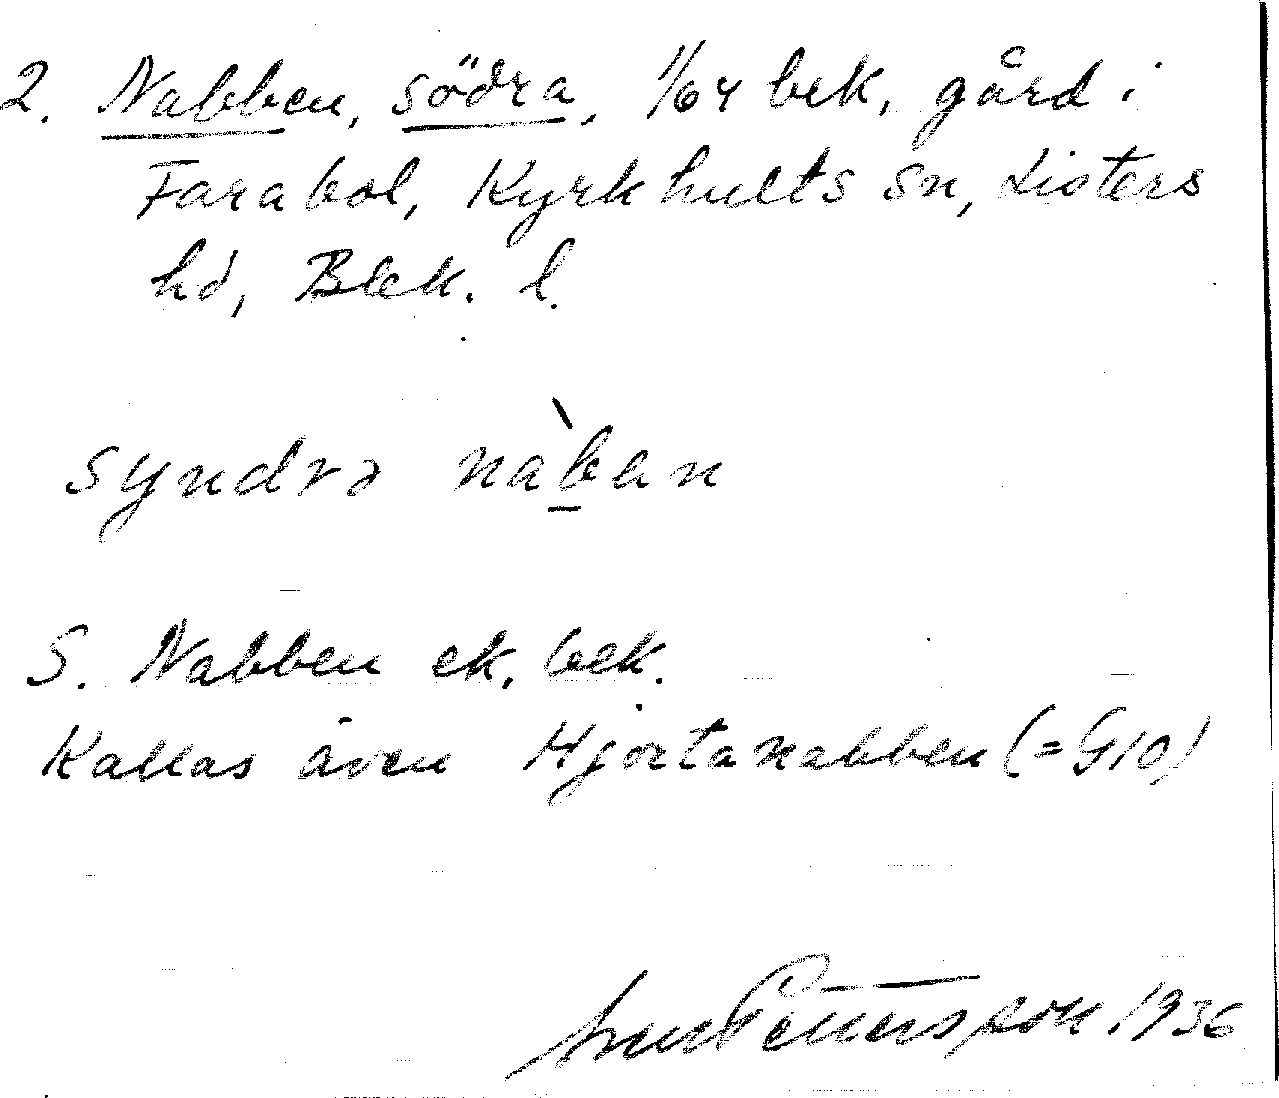 2. Nabben, södra, 1/64 bek, gård i
Farabol, Kyrkhults sn, Listers
hd, Blek. l.
syndrə nàban
S. Nabben ek, bek.
Kallas även Hjortanabben (= G10)
Pettersson 1936